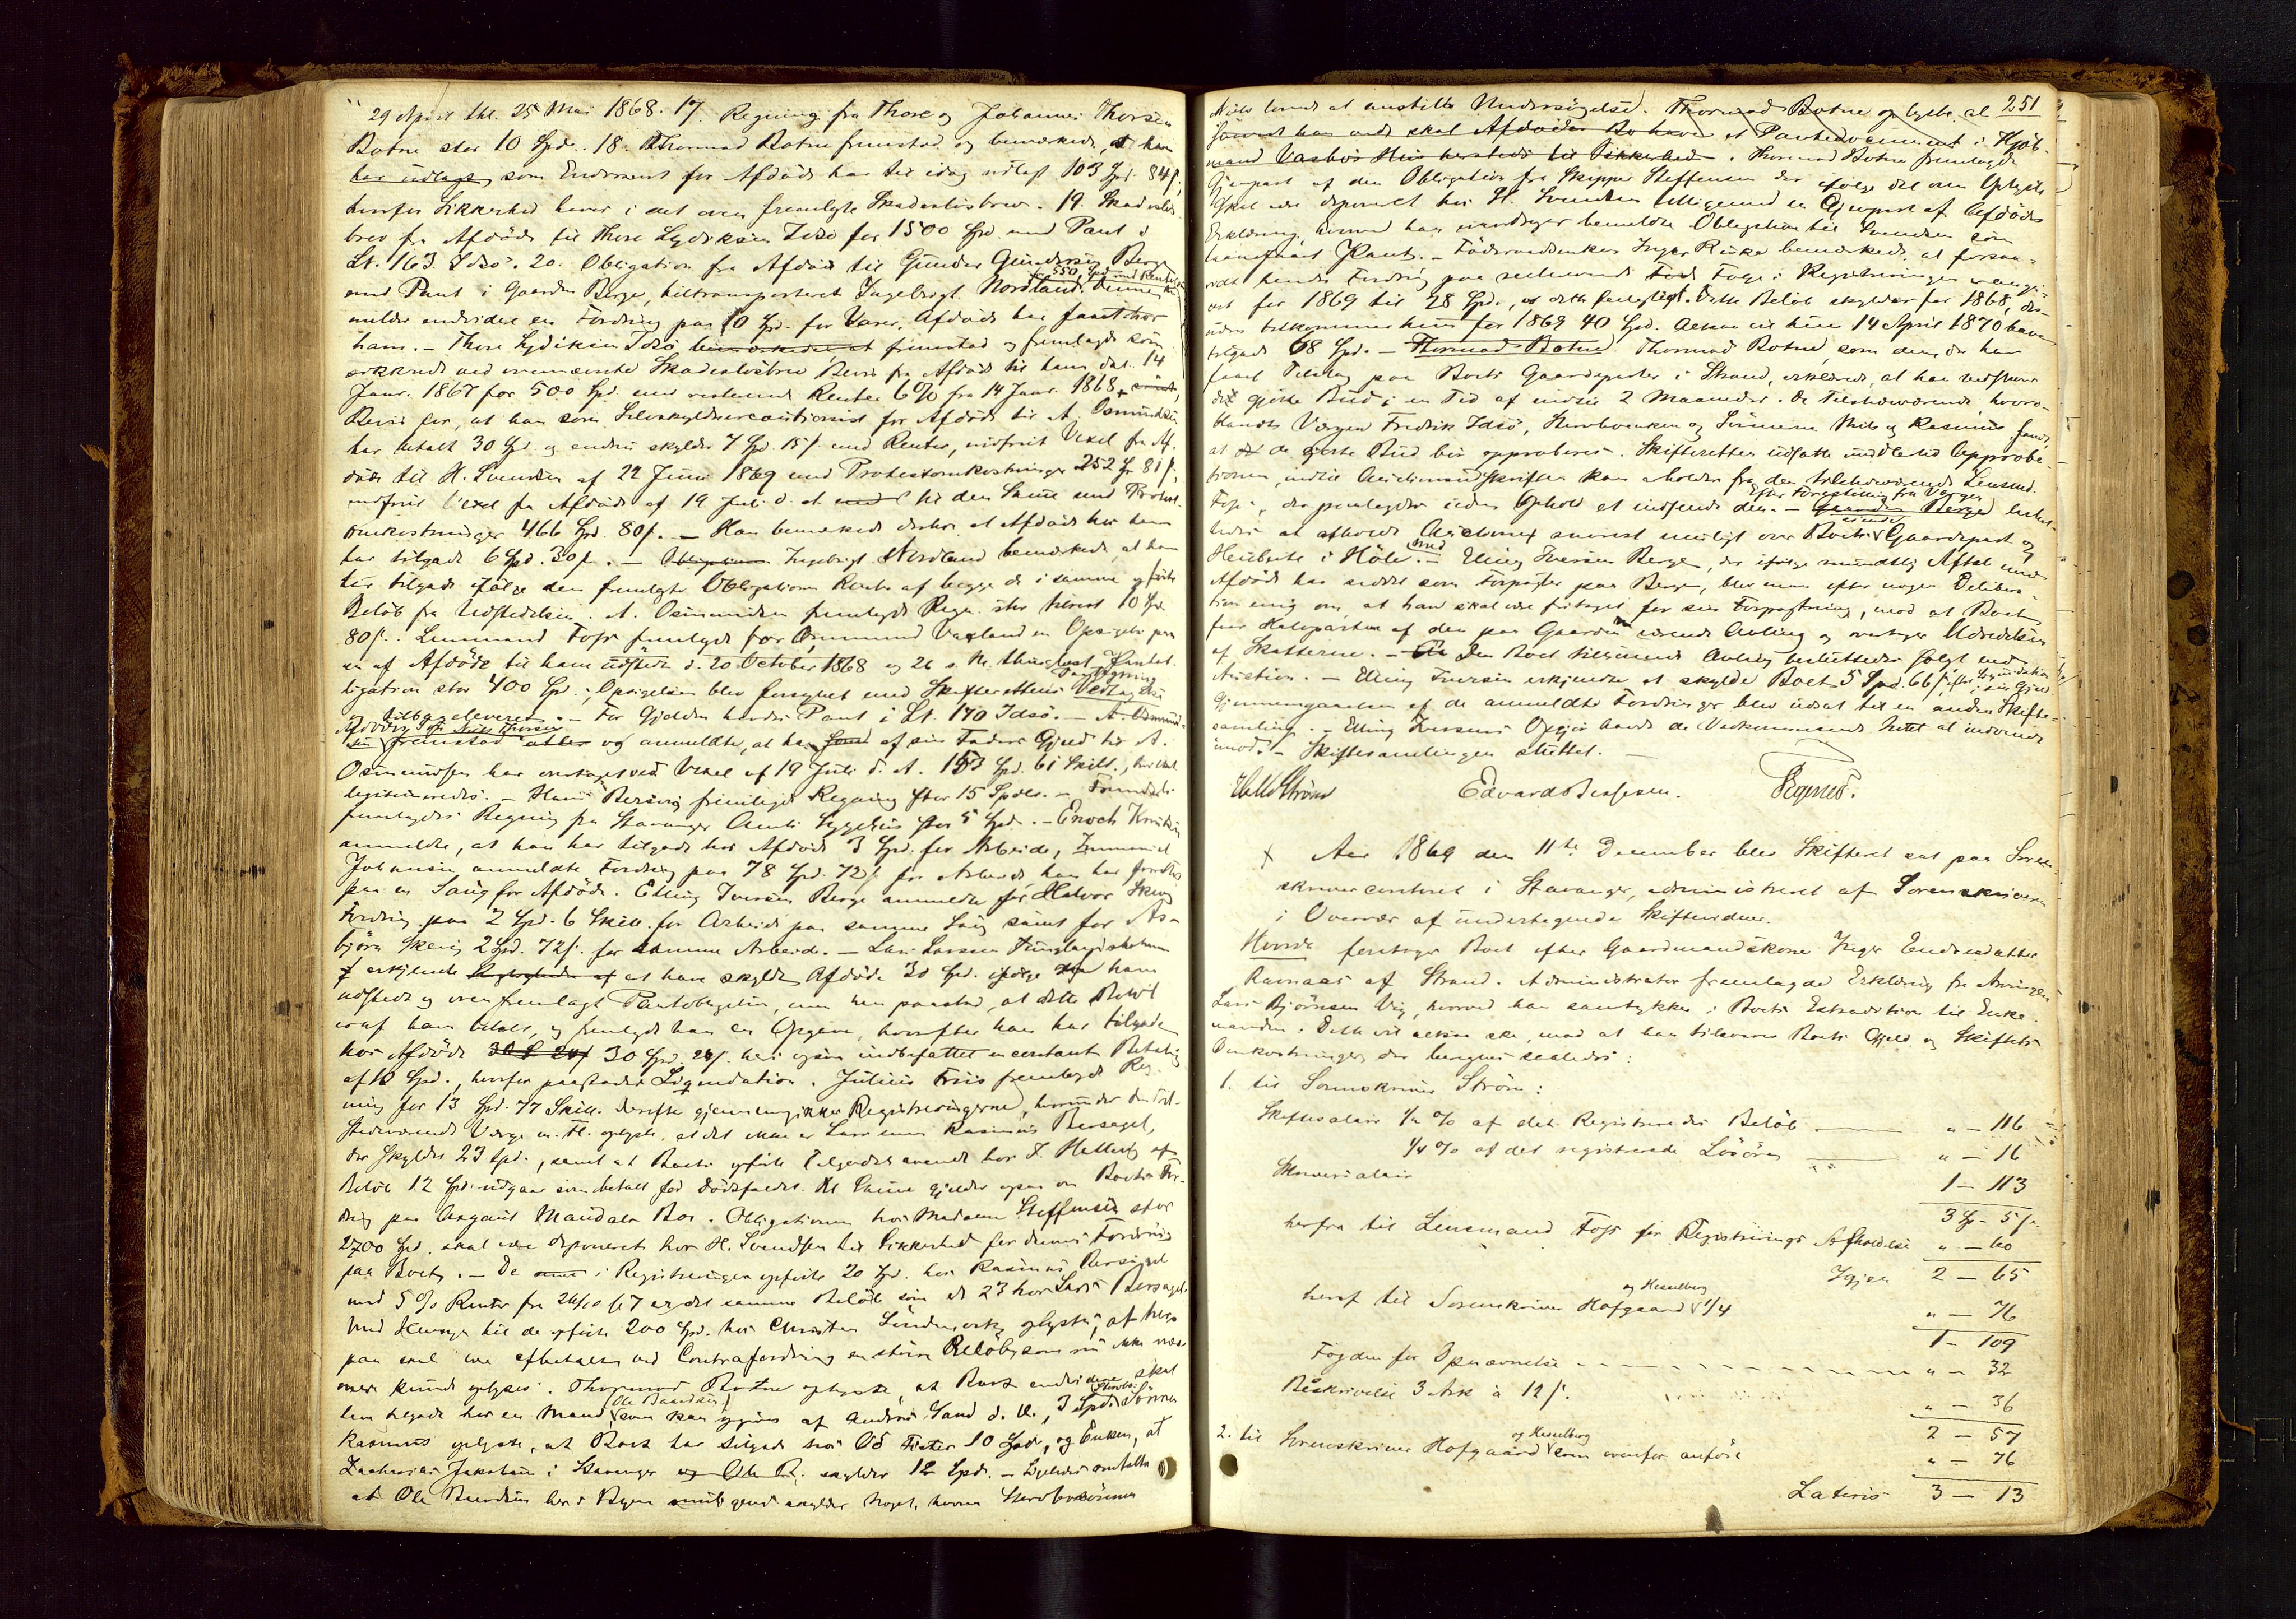 29 April til 25 Mai 1868. 17. Regning fra Thore og Johannes Thorsen
Botne stor 10 Spd. 18. Thormod Botne fremstod og bemærkede, at han
har udlagt som Endossent for Afdöde har til idag udlagt 103 Spd. 84 s,
herfor Sikkerhed haves i det oven fremlagte Skadeslösbrev. 19. Skadeslös-
brev fra Afdöde til Thore Lydiksen Idsö for 1500 Spd. med Pant i
Lt. 163 Idsö. 20. Obligation fra Afdöde til Gunder Gundersen Berge
550 Spd. med
med Pant i Gaarden Berge, tiltransporteret Ingebrigt Nordland. Denne
melder endvidere en Fordring paa 10 Spd. for Varer, Afdöde har faaet hos
ham. – Thore Lydiksen Idsö bemærkede at fremstod og fremlagde som
dækkende ved ovennævnte Skadeslösbrev Bevis fra Afdöde til ham dat. 14
Janr. 1867 for 500 Spd. med resterende Renter 6% fra 14 Janr. 1868,
Bevis for, at han som Selvskyldnercautionist for Afdöde til A. Osmundsen
har betalt 30 Spd. og endnu skylder 7 Spd. 15 s. med Renter, indfriet Vexel fra Af-
döde til H. Svendsen af 22 Juni 1869 med Protestomkostninger 252 Spd. 81 s.
indfriet Vexel fra Afdöde af 19 Juli d. A. til den Samme med Protest-
omkostninger 466 Spd. 80 s. – Han bemærkede derhos at Afdöde hos ham
har tilgode 6 Spd. 30 s. – Obligationen Ingebrigt Nordland bemærkede, at han
har tilgode ifölge den fremlagte Obligation Renter af begge de i samme opförte
Belöb fra Udstedelsen. A. Osmundsen fremlagde Regn. stor tilrest 10 Spd.
80 s. Lensmand Foss fremlagde for Osmund Vagland en Opsigelse paa
en af Afdöde til ham udstedt d. 20 October 1868 og 26 s. M. thinglyst Pantob-
ligation stor 400 Spd.; Opsigelsen blev forsynet med Skifterettens
tilbageleveret. – For Gjelden haves Pant i Lt. 170 Idsö. – A. Osmund-
sen fremstod og anmeldte, at han af sin Faders Gjeld til A.
Osmundsen har overtaget ved Vexel af 19 Juli d. A. 153 Spd. 61 Skill., hvilket
legitimeredes. – Hans Bersagel fremlagde Regning stor 15 Spdlr. –
fremlagdes Regning fra Stavanger Amts Sygehus stor 5 Spd. – Enoch Knudsen
anmeldte, at han har tilgode hos Afdöde 3 Spd. for Arbeide, Immanuel
Johansen anmeldte Fordring paa 78 Spd. 72 s. for Arbeide han har forrettet
paa en Saug for Afdöde. Elling Iversen Berge anmeldte for Halvor Skeig
Fordring paa 2 Spd. 6 Skill. for Arbeide paa samme Saug samt for As-
björn Skeig 2 Spd. 72 s. for samme Arbeide. – Lars Larsen
erkjendte at have skyldt Afdöde 30 Spd. ifölge ham
udstedt og oven fremlagt Pantobligation, men han paastod, at dette Belöb
var af ham betalt, og fremlagde han en Opgave, hvorefter han har tilgode
hos Afdöde 30 Spd. 24 s. heri ogsaa indbefattet en contant Betaling
af 10 Spd., hvorfor paastodes Liqvidation. Julius Friis fremlagde Reg-
ning for 13 Spd. 77 Skill. Derefter gjennemgikkes Registreringerne, hvorunder de Til-
stedeværende Værge m. Fl. oplyste, at det ikke er Lars men Rasmus Bersagel,
der skylder 23 Spd., samt at Boets opförte Tilgodehavende hos
Belöb 12 Spd. udgaar som betalt för Dödsfaldet. Det Samme gjelder ogsaa om Boets For-
dring paa Aagaut Mandals Bo. Obligationen hos Madame Steffensen stor
2700 Spd. skal være deponeret hos H. Svendsen til Sikkerhed for dennes Fordring
paa Boet. – De i Registreringen opförte 20 Spd. hos Rasmus Bersagel
med 5% Renter fra 26/10 67 er det samme Belöb som de 23 hos Lars Bersagel.
Med Hensyn til de opförte 200 Spd. hos Christen Söndervik oplystes, at her-
paa skal være afbetalt ved Contrafordring en större Belöb, som nu ikke nær-
mere kunde oplyses. Thormod Botne oplyste, at Boet endvidere skal
have tilgode hos en Mand (Ole Baardsen) som kan opgives af Andreas Sand d. Æ., 3 Spd. Sönnen
Rasmus oplyste, at Boet har tilgode hos Od Fister 10 Spd., og Enken, at
Zacharias Jakobsen i Stavanger skylder 12 Spd. – Ligeledes omtaltes
at Ole Baardsen her i Byen skylder Noget, hvorom Stervbosönnen
251
Niels lovede at anstille Undersögelse. Thormod Botne oplyste, at
skal Afdödes Bo have et Pantedocument i Kjöb-
mand Vasbös Huus herstedt til Sikkerhed. Thormod Botne fremlagde
Gjenpart af den Obligation fra Skipper Steffensen der ifölge det oven Oplyste
skal være deponeret hos H. Svendsen tilligemed en Gjenpart af Afdödes
Erklæring, hvorved han overdrager bemeldte Obligation til Svendsen som
haandfaaet Pant. – Föderaadsenken Inger Riske bemærkede, at forsaa-
vidt hendes Fordring paa resterende Föde Foge i Registreringen er angi-
vet for 1869 til 28 Spd., er dette feilagtigt. Dette Belöb skyldes for 1868, des-
uden tilkommer hun for 1869 40 Spd. Altsaa vil hun 14 April 1870 have
tilgode 68 Spd. – Thormod Botne Thormod Botne, som den, der har
faaet Tilslag paa Boets Gaardeparter i Strand, erklærede, at han vedstaar
det gjorte Bud i en Tid af indtil 2 Maaneder. De Tilstedeværende, hvori-
blandt Værgen Fredrik Idsö, Stervboenken og Sönnerne Niels og Rasmus fandt,
at de gjorte Bud bör approberes. Skifteretten udsatte imidlertid Approba-
tionen, indtil Auctionsudskriften kan erholdes fra den tilstedeværende Lensmd.
Foss, der paalagdes uden Ophold at indsende den. – Efter Forestilling fra Værgen beslut-
tedes at afholde Auction snarest muligt over Boets eiende Gaardepart og
Heibeite i Höle. – Elling Iversen Berge, der ifölge mundtlig Aftale med
Afdöde har siddet som Forpagter paa Berge, blev man efter nogen Delibera-
tion enig om, at han skal være fritaget for sin Forpagtning, mod at Boet
faar Halvparten af den paa Gaarden værende Avling og overtager Udredelsen
af Skatterne. – Den Boet tilkommende Avling besluttedes solgt ved
Auction. – Elling Iversen erkjendte at skylde Boet 5 Spd. 66 s. efter Liqvidation i sin Gjæld.
Gjennemgaaelsen af de anmeldte Fordringer blev udsat til en anden Skifte-
samling. – Elling Iversens Opgjör havde de Vedkommende Intet at indvende
imod. – Skiftesamlingen sluttet. –
Edvard Bessesen.
Aar 1869 den 11te December blev Skifteret sat paa Soren-
skrivercontoret i Stavanger, administreret af Sorenskriveren
i Overvær af undertegnede Skiftevidner.
Hvorda foretoges Boet efter Gaardmandskone Inger Endresdatter
Ravnaas af Strand. Administrator fremlagde Erklæring fra Arvingen
Lars Björnsen Vig, hvorved han samtykker i Boets Extradition til Enke-
manden. Dette vil altsaa ske, mod at han tilsvarer Boets Gjeld og Skiftets
Omkostninger, der beregnes saaledes:
1. til Sorenskriver Ström:
Skiftesalair 1/2 % af det Registreredes Belöb — „ – 116
1/4 % af det registrerede Lösöre — „ – 16
Skriversalair 1 – 113
3 Sp – 5 s.
herfra til Lensmand Foss for Registrerings Afholdelse „ – 60
Igjen 2 – 65
heraf til Sorenskriver Hofgaard og Hesselberg 1/4 „ – 76
1 – 109
Fogden for Opnævnelse „ – 32
Beskrivelse 3 Ark à 12 s. „ – 36
2 – 57
2. til Sorenskriver Hofgaard og Hesselberg som ovenfor anfört „ – 76
Lateris 3 – 13